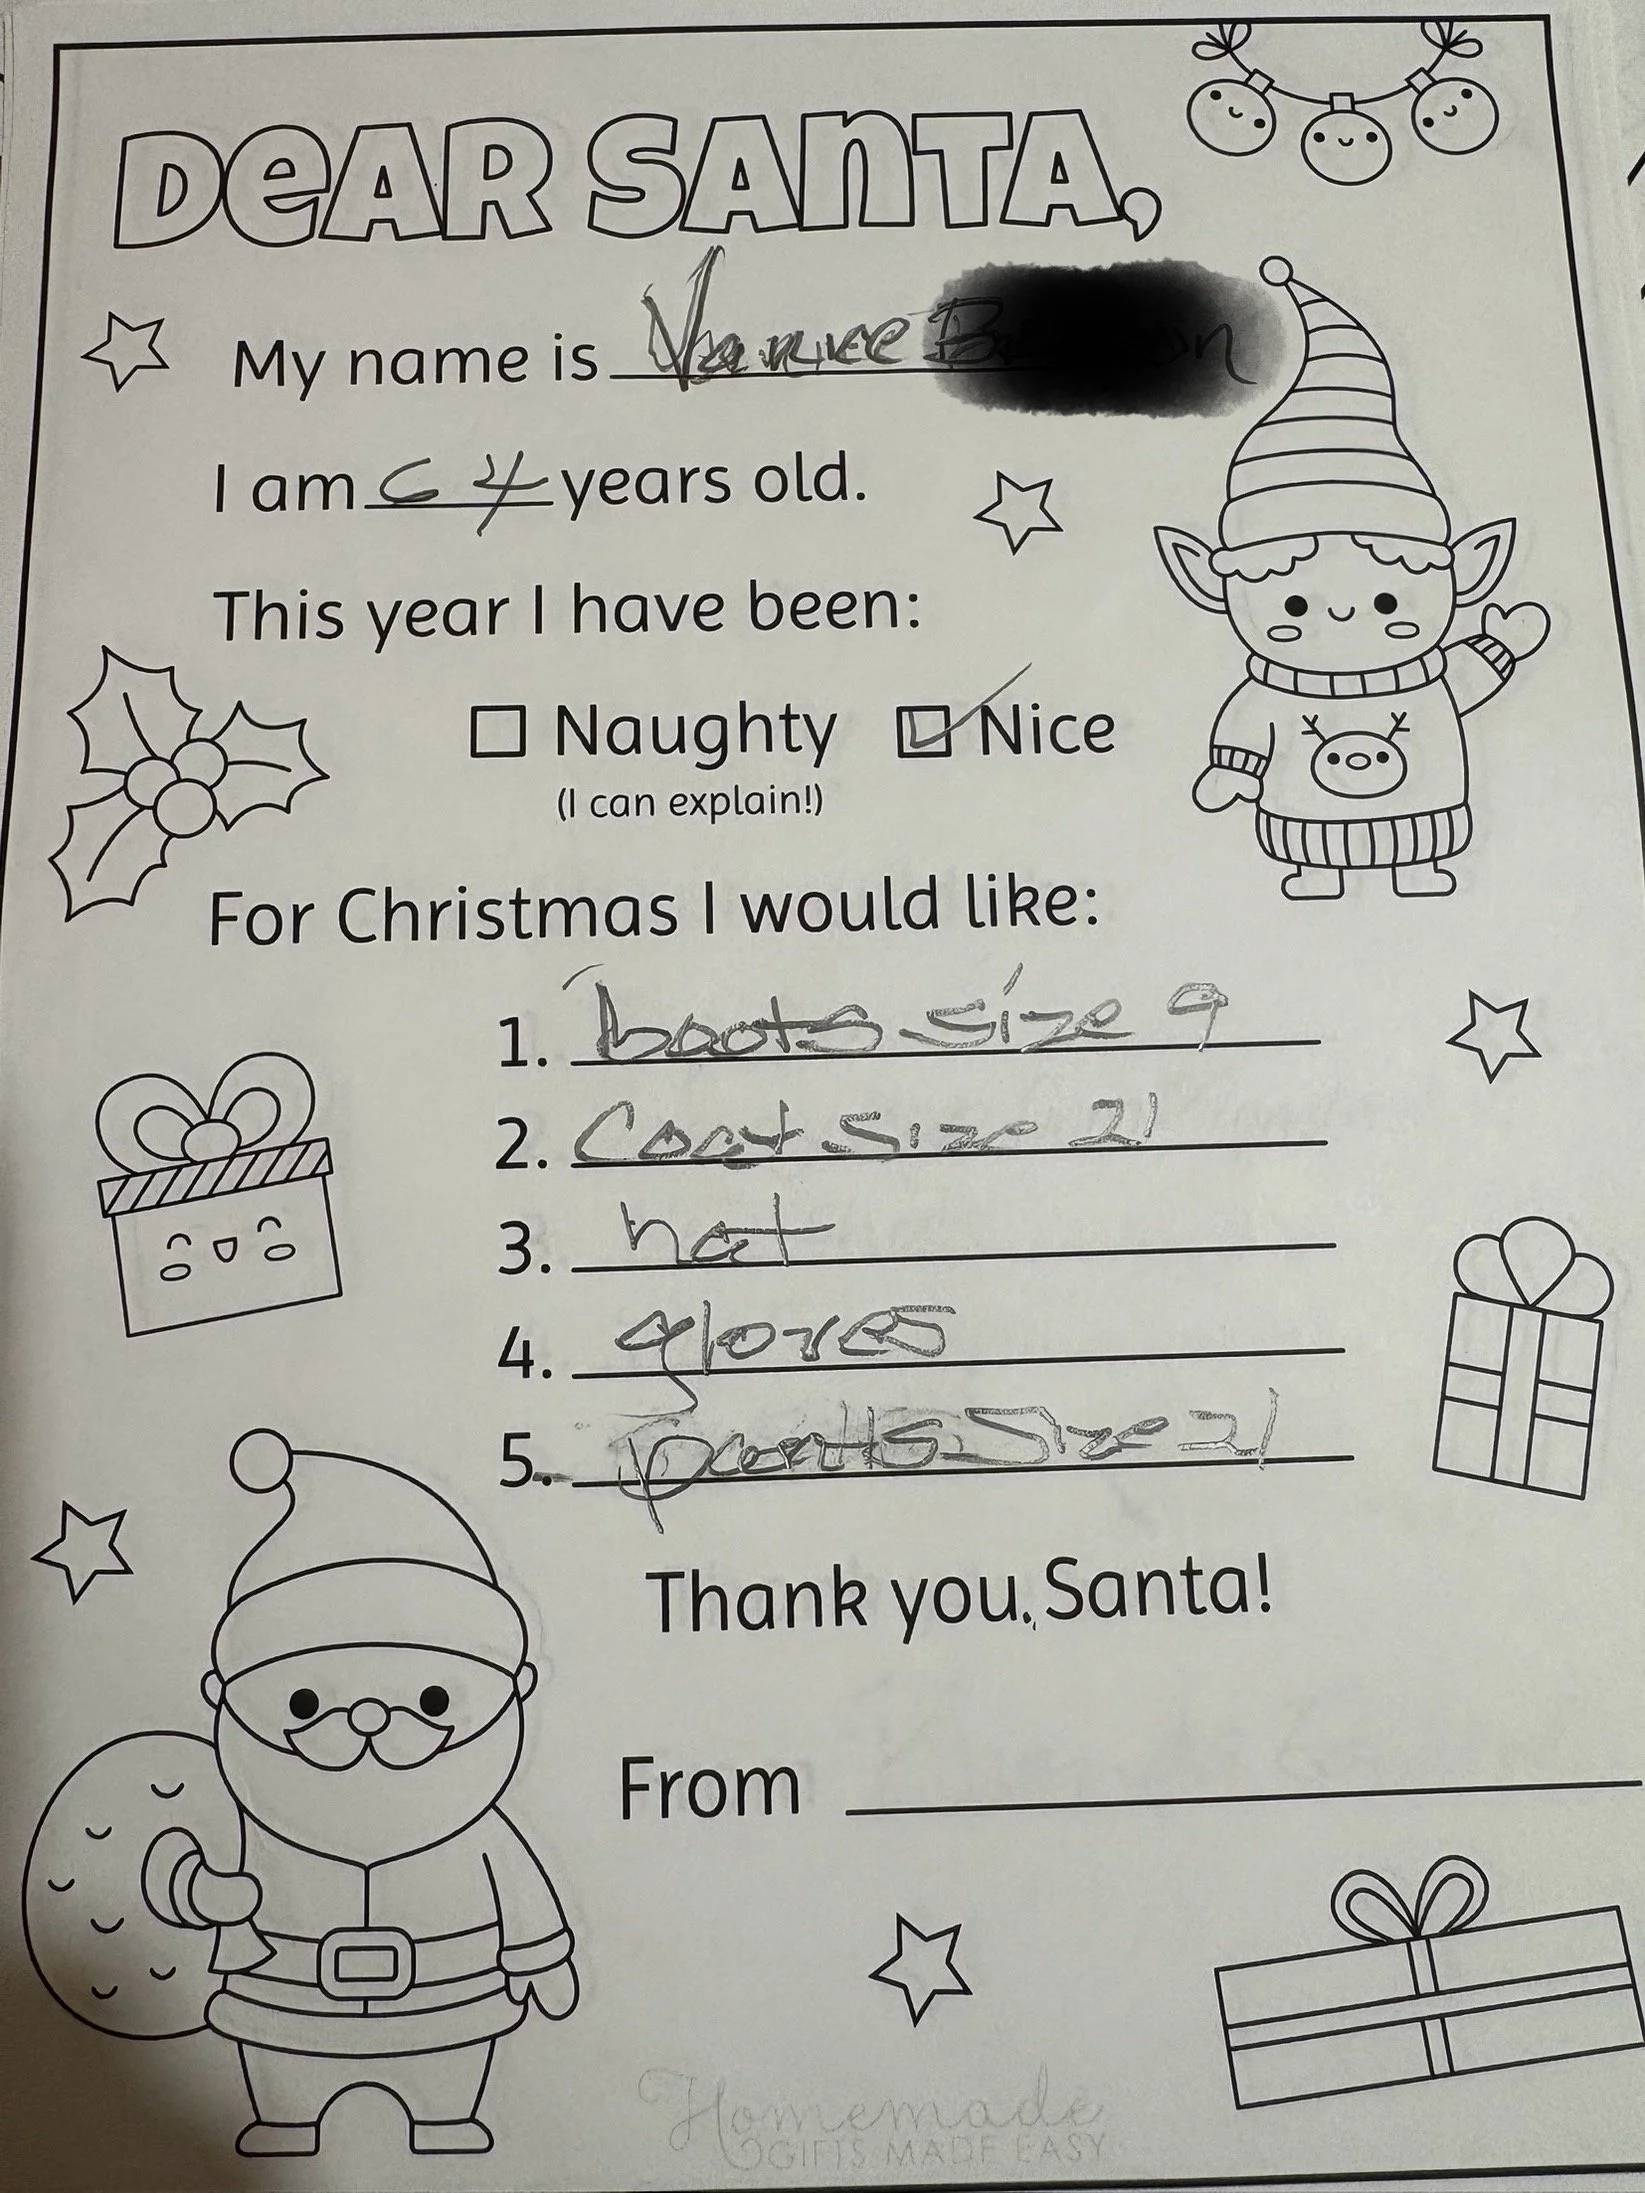 DEAR SANTA,
My name is
I am 64 years old.
This year I have been:
Naughty Nice
(I can explain!)
For Christmas I would like:
1. boots size 9
2. Coat size 21
3. hat
4. gloves
5. pants size 21
Thank you, Santa!
From
Homemade
GIFTS MADE EASY